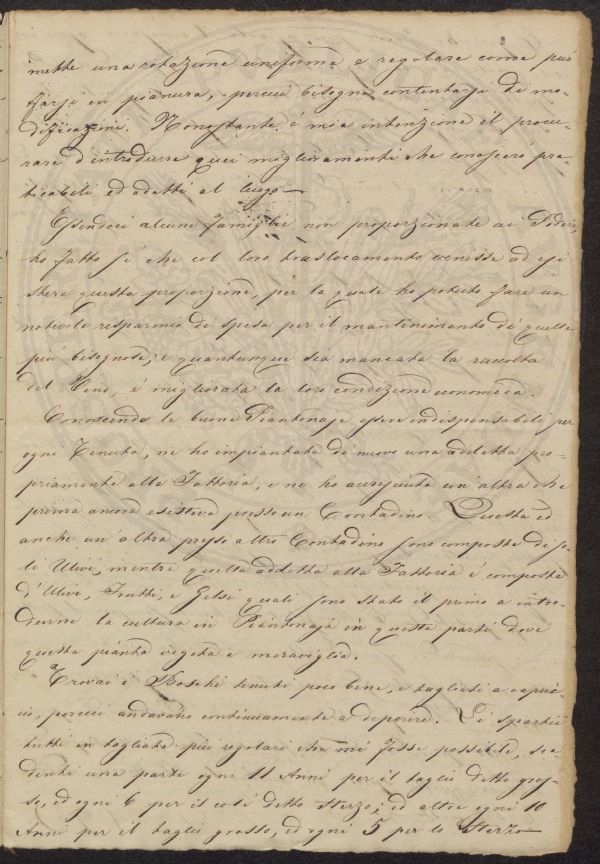 mette una rotazione uniforme e regolare come può
farsi in pianura, perciò bisogna contentarsi di mo-
dificazioni. Nonostante è mia intenzione il procu-
rare d'introdurre quei miglioramenti che conoscerò pra-
ticabili ed adatti al luogo —
Essendoci alcune famiglie non proporzionate ai Poderi,
ho fatto sì che col loro traslocamento venisse ad esi-
stere questa proporzione, per la quale ho potuto fare un
notevole risparmio di spesa per il mantenimento di quelle
più bisognose; e quantunque sia mancata la raccolta
del Vino, è migliorata la loro condizione economica.
Conoscendo le buone Piantonaje essere indispensabili per
ogni Tenuta, ne ho impiantata di nuovo una addetta pro-
priamente alla Fattoria, e ne ho accresciuta un'altra che
prima ancora esisteva presso un Contadino. Questa ed
anche un altra presso altro Contadino sono composte di so-
li Ulivi, mentre quella addetta alla Fattoria è composta
d'Ulivi, Frutti, e Gelsi quali sono stato il primo a intro-
durne la cultura in Piantonaja in queste parti dove
questa pianta vegeta a meraviglia.
Trovai i Boschi tenuti poco bene, e tagliati a capric-
cio, perciò andavano continuamente a deperire. Li spartii
tutti in tagliate più regolari che mi fosse possibile, sca-
denti una parte ogni 11 Anni per il taglio detto gros-
so, ed ogni 6 per il così detto Sterzo; ed altre ogni 10
Anni per il taglio grosso, ed ogni 5 per lo Sterzo —